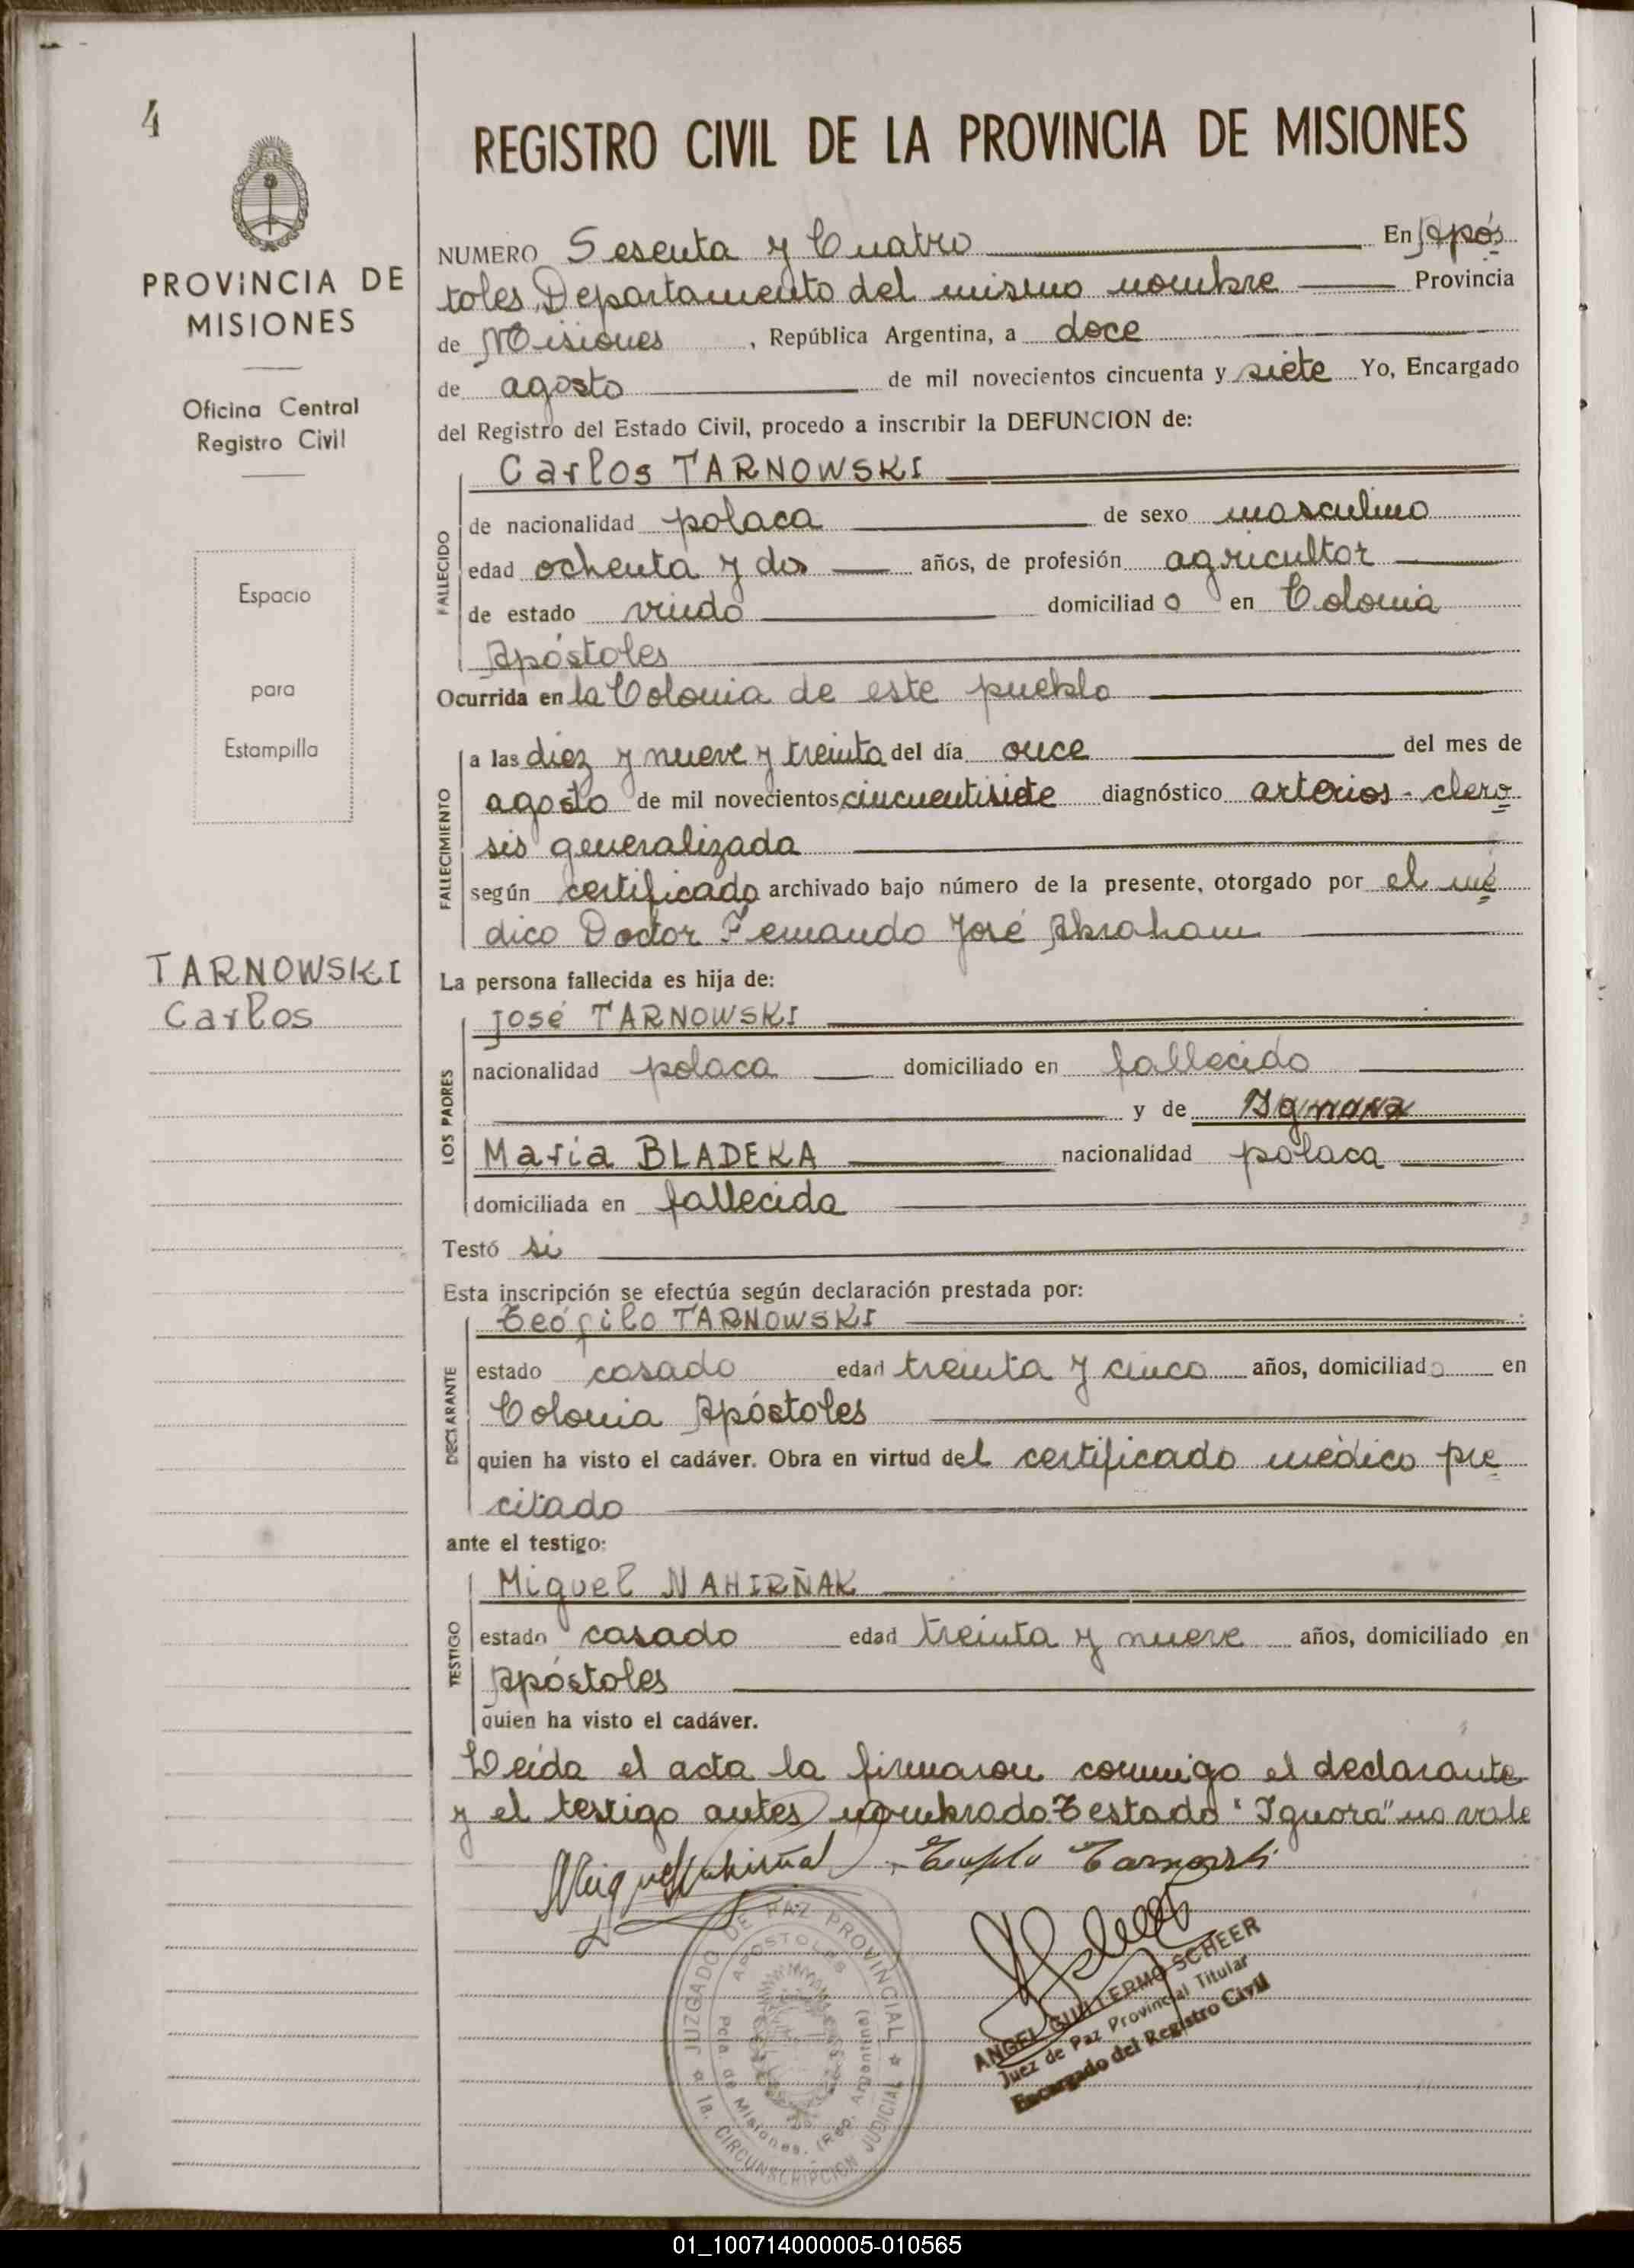 4
PROVINCIA DE
MISIONES
Oficina Central
Registro Civil
Espacio
para
Estampilla
TARNOWSKI
Carlos
REGISTRO CIVIL DE LA PROVINCIA DE MISIONES
NUMERO Sesenta y Cuatro En Após
toles, Departamento del mismo nombre Provincia
de Misiones, República Argentina, a doce
de agosto de mil novecientos cincuenta y siete Yo, Encargado
del Registro del Estado Civil, procedo a inscribir la DEFUNCION de:
Carlos TARNOWSKI
FALLECIDO
de nacionalidad polaca de sexo masculino
edad ochenta y dos años, de profesión agricultor
de estado viudo domiciliado en Colonia
Apóstoles
Ocurrida en la Colonia de este pueblo
FALLECIMIENTO
a las diez y nueve y treinta del día once del mes de
agosto de mil novecientos cincuentisiete diagnóstico arterios-clero
sis generalizada
según certificado archivado bajo número de la presente, otorgado por el mé
dico Doctor Fernando José Abraham
La persona fallecida es hija de:
LOS PADRES
José TARNOWSKI
nacionalidad polaca domiciliado en fallecido
y de Ignora
María BLADEKA nacionalidad polaca
domiciliada en fallecida
Testó si
Esta inscripción se efectúa según declaración prestada por:
DECLARANTE
Teófilo TARNOWSKI
estado casado edad treinta y cinco años, domiciliado en
Colonia Apóstoles
quien ha visto el cadáver. Obra en virtud del certificado médico pre
citado
ante el testigo:
TESTIGO
Miguel NAHIRÑAK
estado casado edad treinta y nueve años, domiciliado en
Apóstoles
quien ha visto el cadáver.
Leída el acta la firmaron conmigo el declarante
y el testigo antes nombrado. Testado "Ignora" no vale
JUZGADO DE PAZ PROVINCIAL
1a. CIRCUNSCRIPCION JUDICIAL
APOSTOLES
Pcia. de Misiones. (Rep. Argentina)
ANGEL GUILLERMO SCHEER
Juez de Paz Provincial Titular
Encargado del Registro Civil
01_100714000005-010565